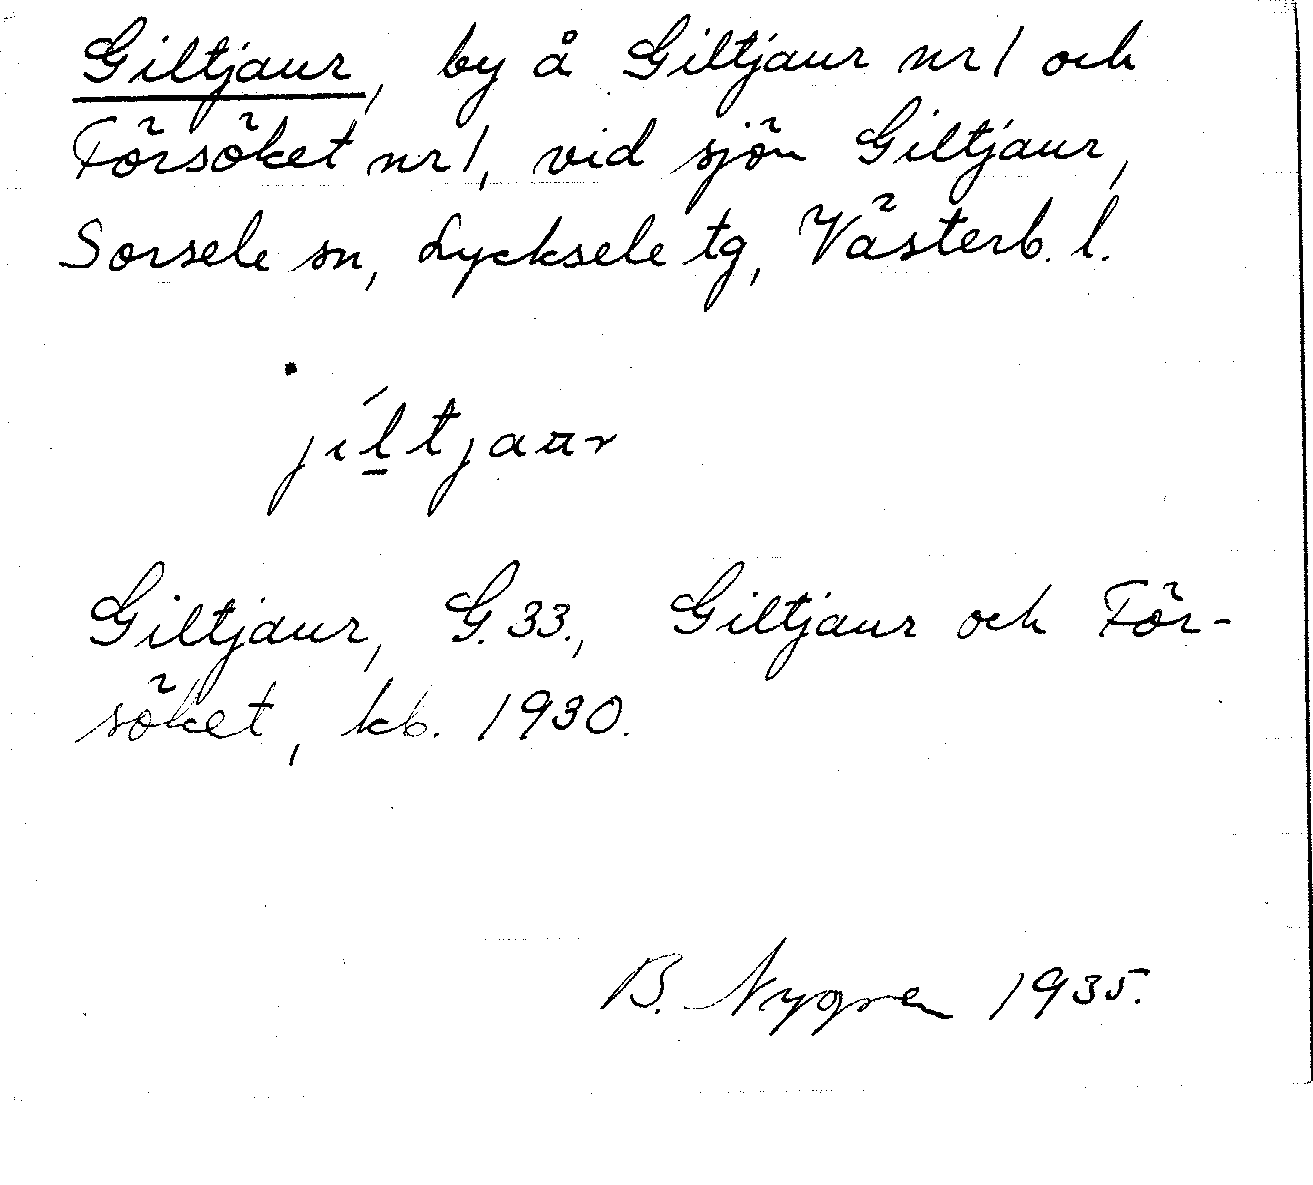 Giltjaur, by å Giltjaur nr 1 och
Försöket nr 1, vid sjön Giltjaur,
Sorsele sn, Lycksele tg, Västerb. l.
jíl̲tjaur
Giltjaur, G. 33., Giltjaur och För-
söket, kb. 1930.
B. Nygren 1935.